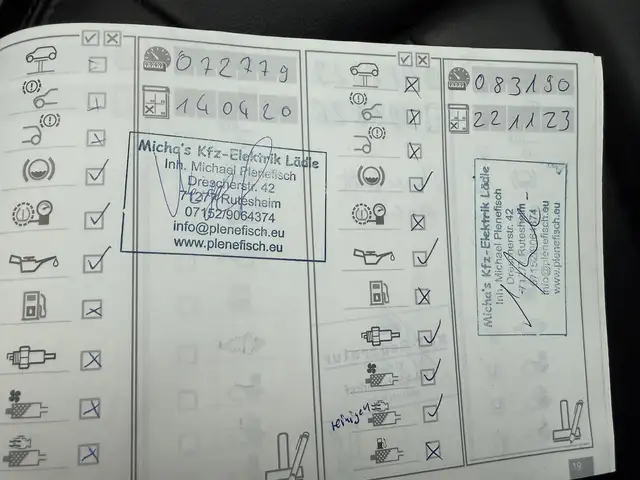 072779
140420
Micha's Kfz-Elektrik Lädle
Inh. Michael Plenefisch
Drescherstr. 42
71277 Rutesheim
07152/9064374
info@plenefisch.eu
www.plenefisch.eu
reinigen
083190
221123
Micha's Kfz-Elektrik Lädle
Inh. Michael Plenefisch
Drescherstr. 42
71277 Rutesheim
07152/9064374
info@plenefisch.eu
www.plenefisch.eu
19